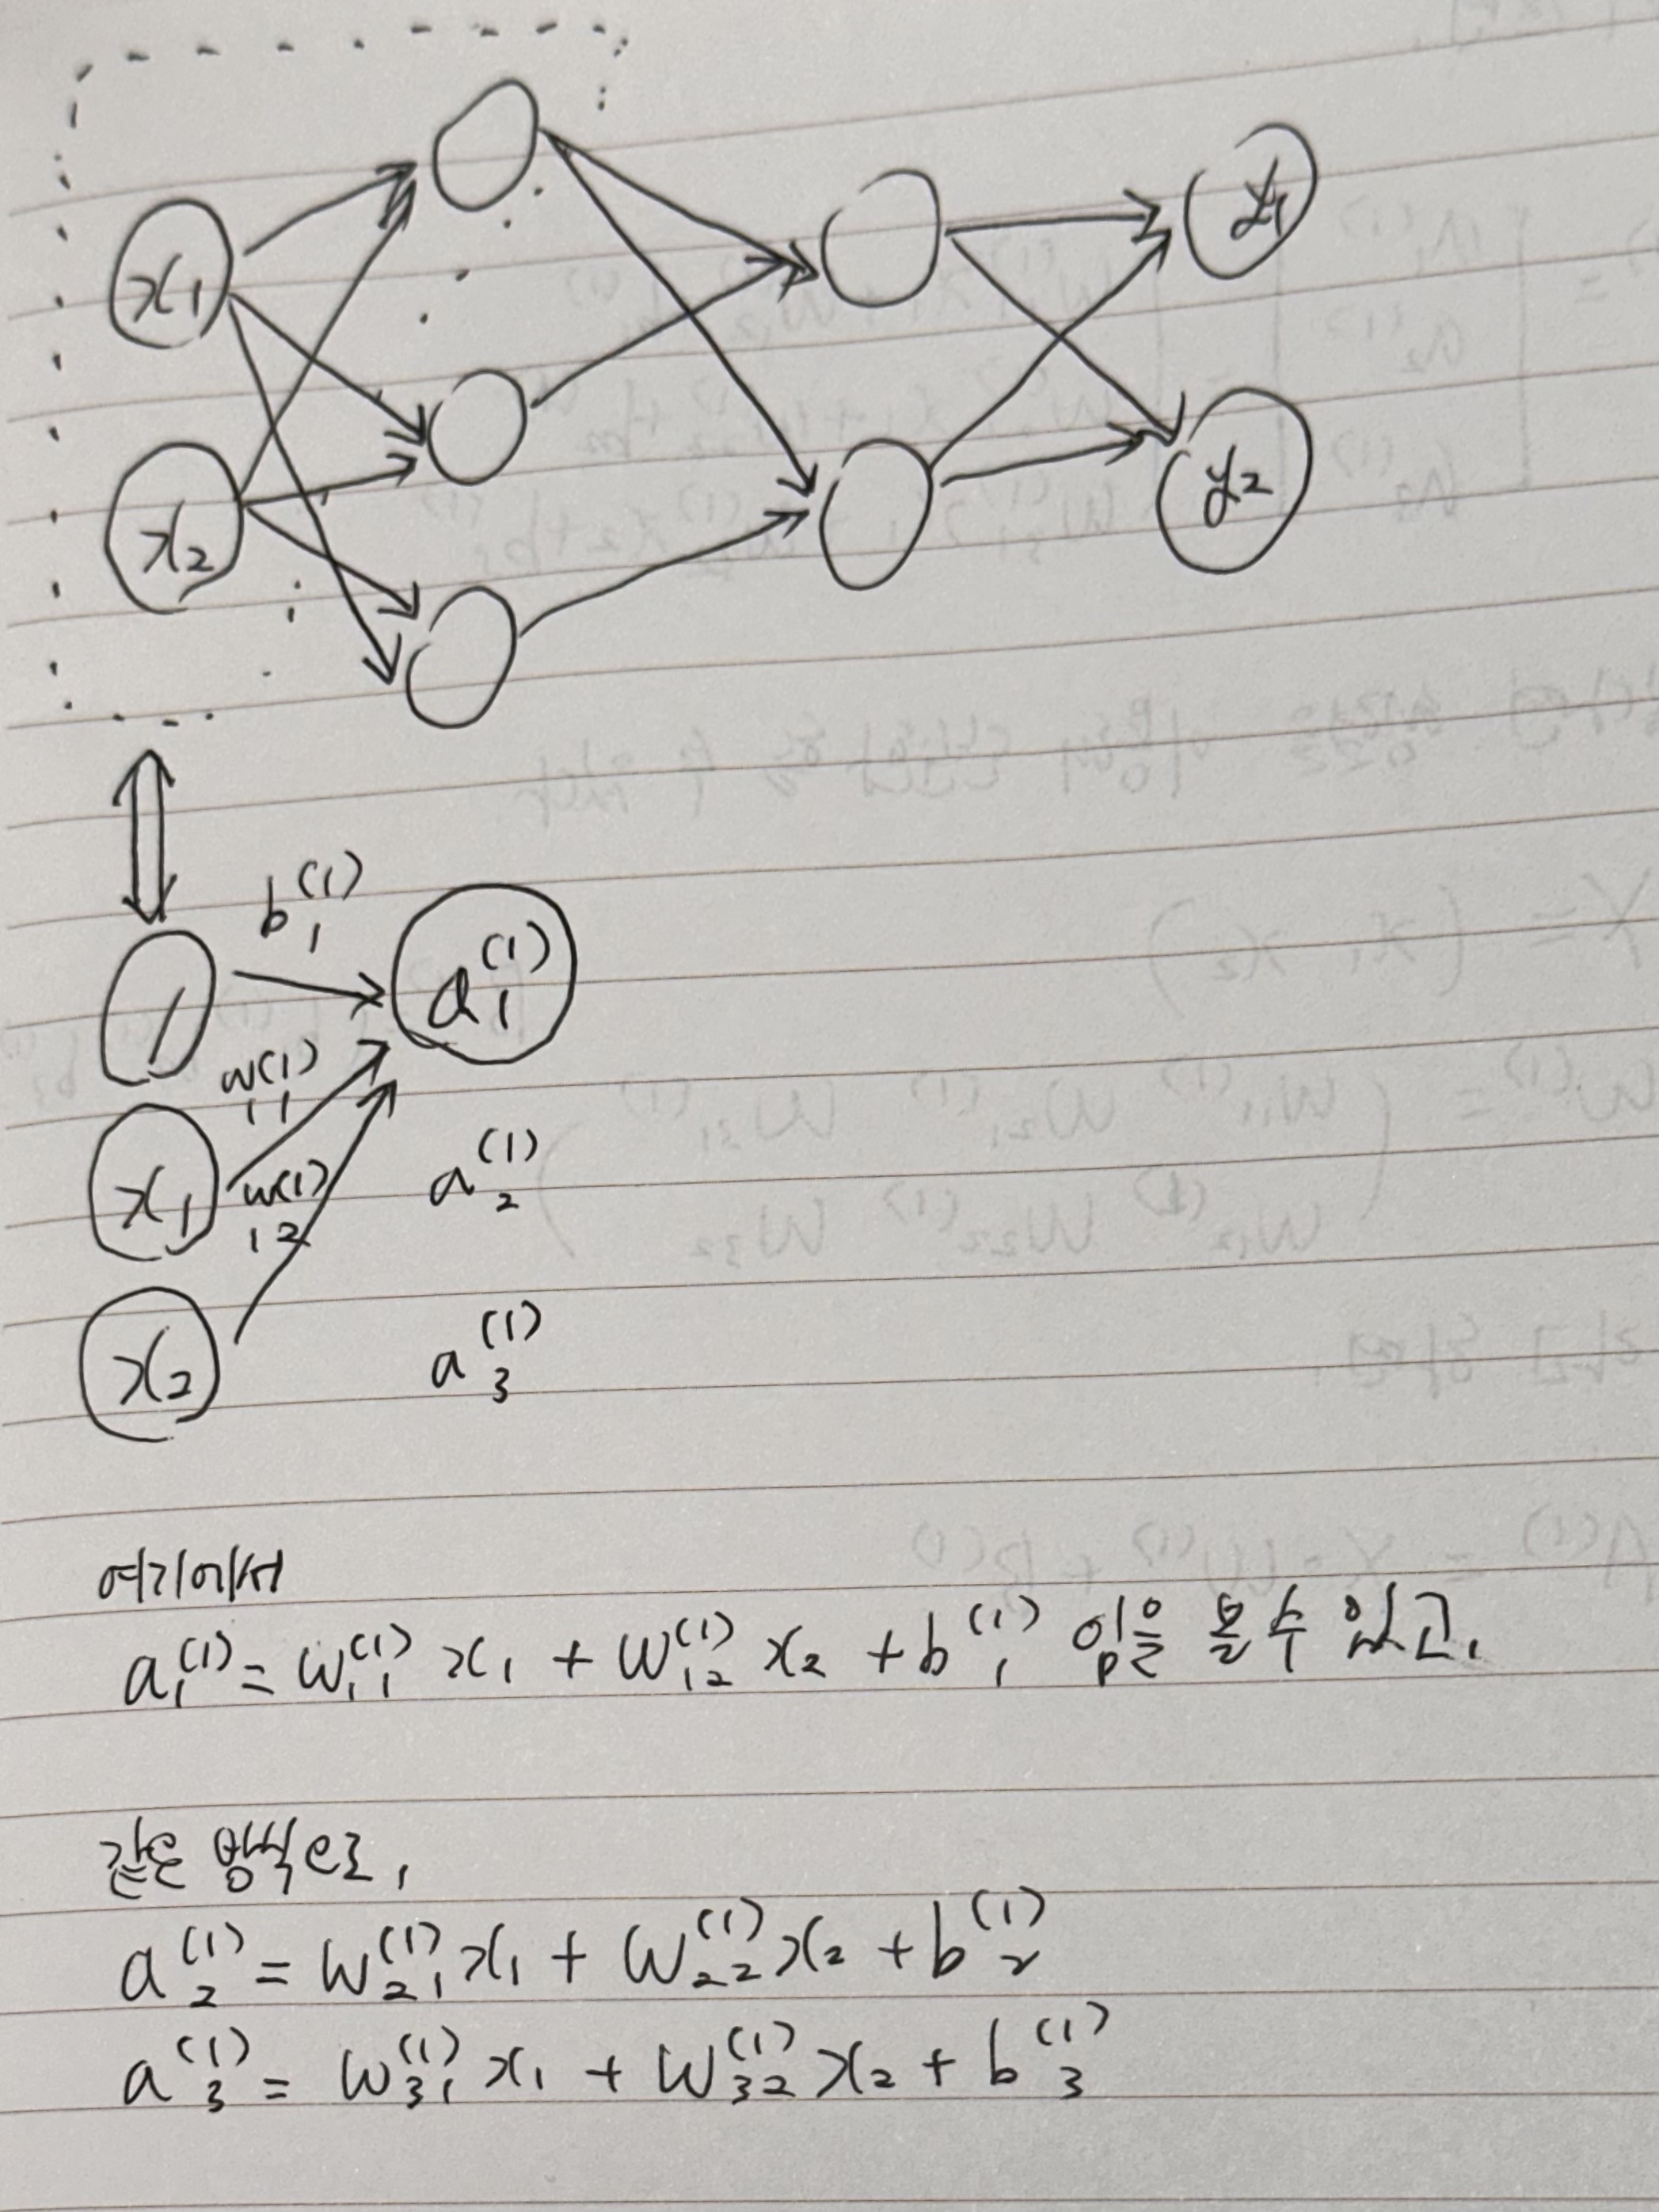 x₁
y₁
x₂
y₂
b₁⁽¹⁾
1
a₁⁽¹⁾
w₁₁⁽¹⁾
x₁
w₁₂⁽¹⁾
a₂⁽¹⁾
x₂
a₃⁽¹⁾
여기에서
a₁⁽¹⁾ = w₁₁⁽¹⁾ x₁ + w₁₂⁽¹⁾ x₂ + b₁⁽¹⁾ 임을 볼 수 있고,
같은 방식으로,
a₂⁽¹⁾ = w₂₁⁽¹⁾ x₁ + w₂₂⁽¹⁾ x₂ + b₂⁽¹⁾
a₃⁽¹⁾ = w₃₁⁽¹⁾ x₁ + w₃₂⁽¹⁾ x₂ + b₃⁽¹⁾